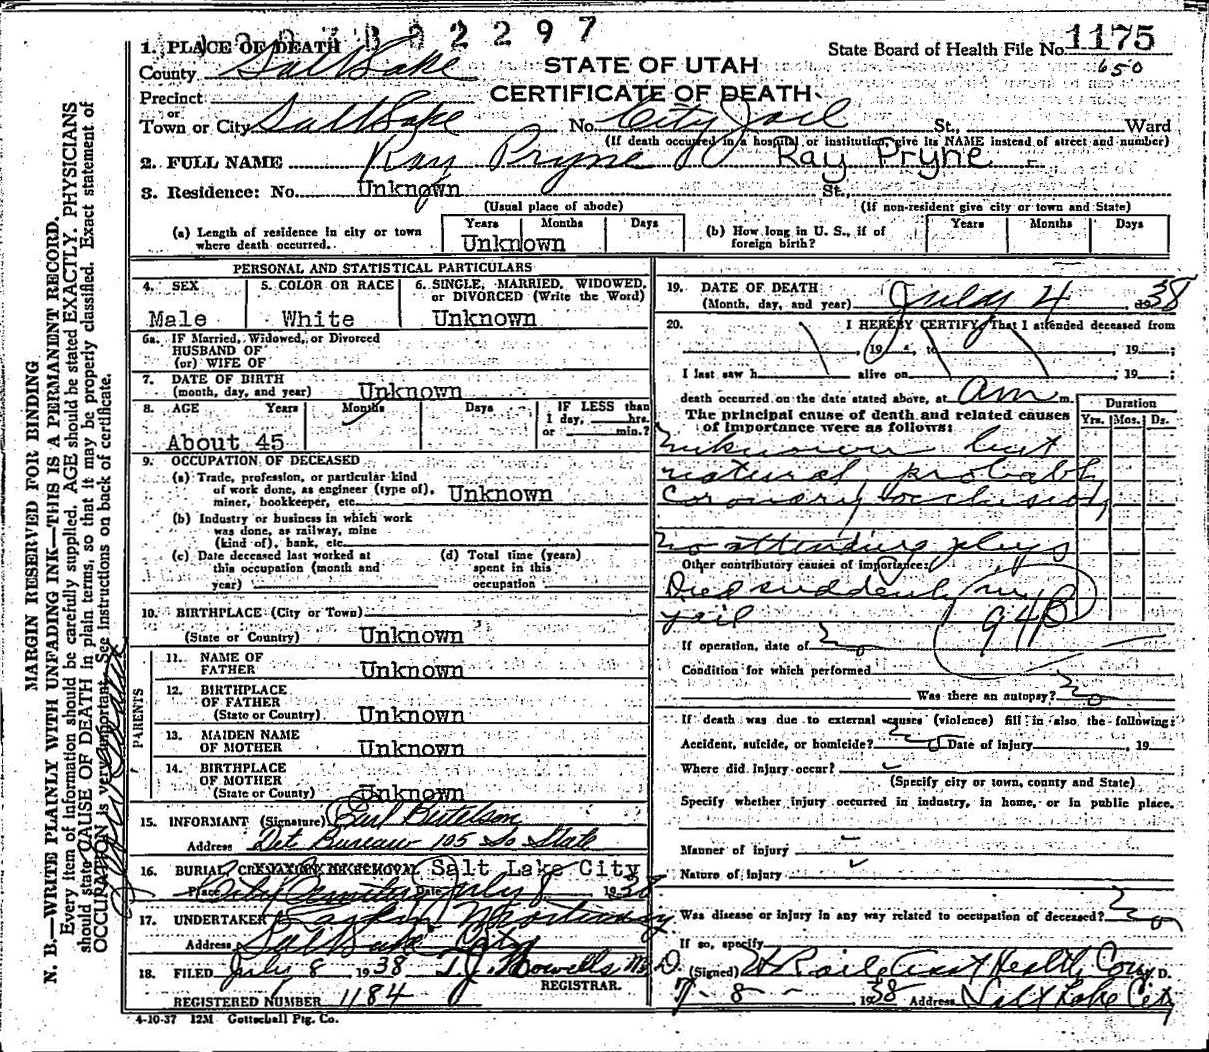 2297
1. PLACE OF DEATH
State Board of Health File No. 1175
650
County Salt Lake
STATE OF UTAH
CERTIFICATE OF DEATH
Precinct
or
Town or City Salt Lake No. City Jail St., Ward
(If death occurred in a hospital or institution, give its NAME instead of street and number)
2. FULL NAME Ray Pryne Ray Pryne
3. Residence: No. Unknown St.,
(Usual place of abode) (If non-resident give city or town and State)
(a) Length of residence in city or town where death occurred. Years Months Days
Unknown
(b) How long in U. S., if of foreign birth? Years Months Days
PERSONAL AND STATISTICAL PARTICULARS
4. SEX 5. COLOR OR RACE 6. SINGLE, MARRIED, WIDOWED, or DIVORCED (Write the Word)
Male White Unknown
6a. IF Married, Widowed, or Divorced
HUSBAND OF
(or) WIFE OF
7. DATE OF BIRTH
(month, day, and year) Unknown
8. AGE Years Months Days IF LESS than
1 day, hrs.
or min.?
About 45
9. OCCUPATION OF DECEASED
(a) Trade, profession, or particular kind
of work done, as engineer (type of),
miner, bookkeeper, etc. Unknown
(b) Industry or business in which work
was done, as railway, mine
(kind of), bank, etc.
(c) Date deceased last worked at
this occupation (month and
year)
(d) Total time (years)
spent in this
occupation
10. BIRTHPLACE (City or Town)
(State or Country) Unknown
PARENTS
11. NAME OF
FATHER Unknown
12. BIRTHPLACE
OF FATHER
(State or Country) Unknown
13. MAIDEN NAME
OF MOTHER Unknown
14. BIRTHPLACE
OF MOTHER
(State or County) Unknown
15. INFORMANT (Signature) Earl
Address Det Bureau 105 So State
16. BURIAL, CREMATION OR REMOVAL Salt Lake City
Place City Cemetery Date July 8 1938
17. UNDERTAKER Mortuary
Address Salt Lake City
18. FILED July 8 1938 T. J. Howells MD.
REGISTRAR.
REGISTERED NUMBER 1184
4-10-37 12M Gottschall Ptg. Co.
19. DATE OF DEATH
(Month, day, and year) July 4, 1938
20. I HEREBY CERTIFY, That I attended deceased from
, 19 , to , 19 ;
I last saw h alive on , 19 ;
death occurred on the date stated above, at am m.
The principal cause of death and related causes
of importance were as follows:
Duration
Yrs. Mos. Ds.
unknown but
natural probably
coronary occlusion
no attending phys
Other contributory causes of importance:
Died suddenly in
jail
94B
If operation, date of No
Condition for which performed
Was there an autopsy? No
If death was due to external causes (violence) fill in also the following:
Accident, suicide, or homicide? No Date of injury , 19
Where did injury occur?
(Specify city or town, county and State)
Specify whether injury occurred in industry, in home, or in public place.
Manner of injury
Nature of injury
Was disease or injury in any way related to occupation of deceased? No
If so, specify
(Signed) Asst Health Com M. D.
7 - 8 - 1938 Address Salt Lake City
MARGIN RESERVED FOR BINDING
N. B.—WRITE PLAINLY WITH UNFADING INK—THIS IS A PERMANENT RECORD.
Every item of information should be carefully supplied. AGE should be stated EXACTLY. PHYSICIANS
should state CAUSE OF DEATH in plain terms, so that it may be properly classified. Exact statement of
OCCUPATION is very important. See instructions on back of certificate.